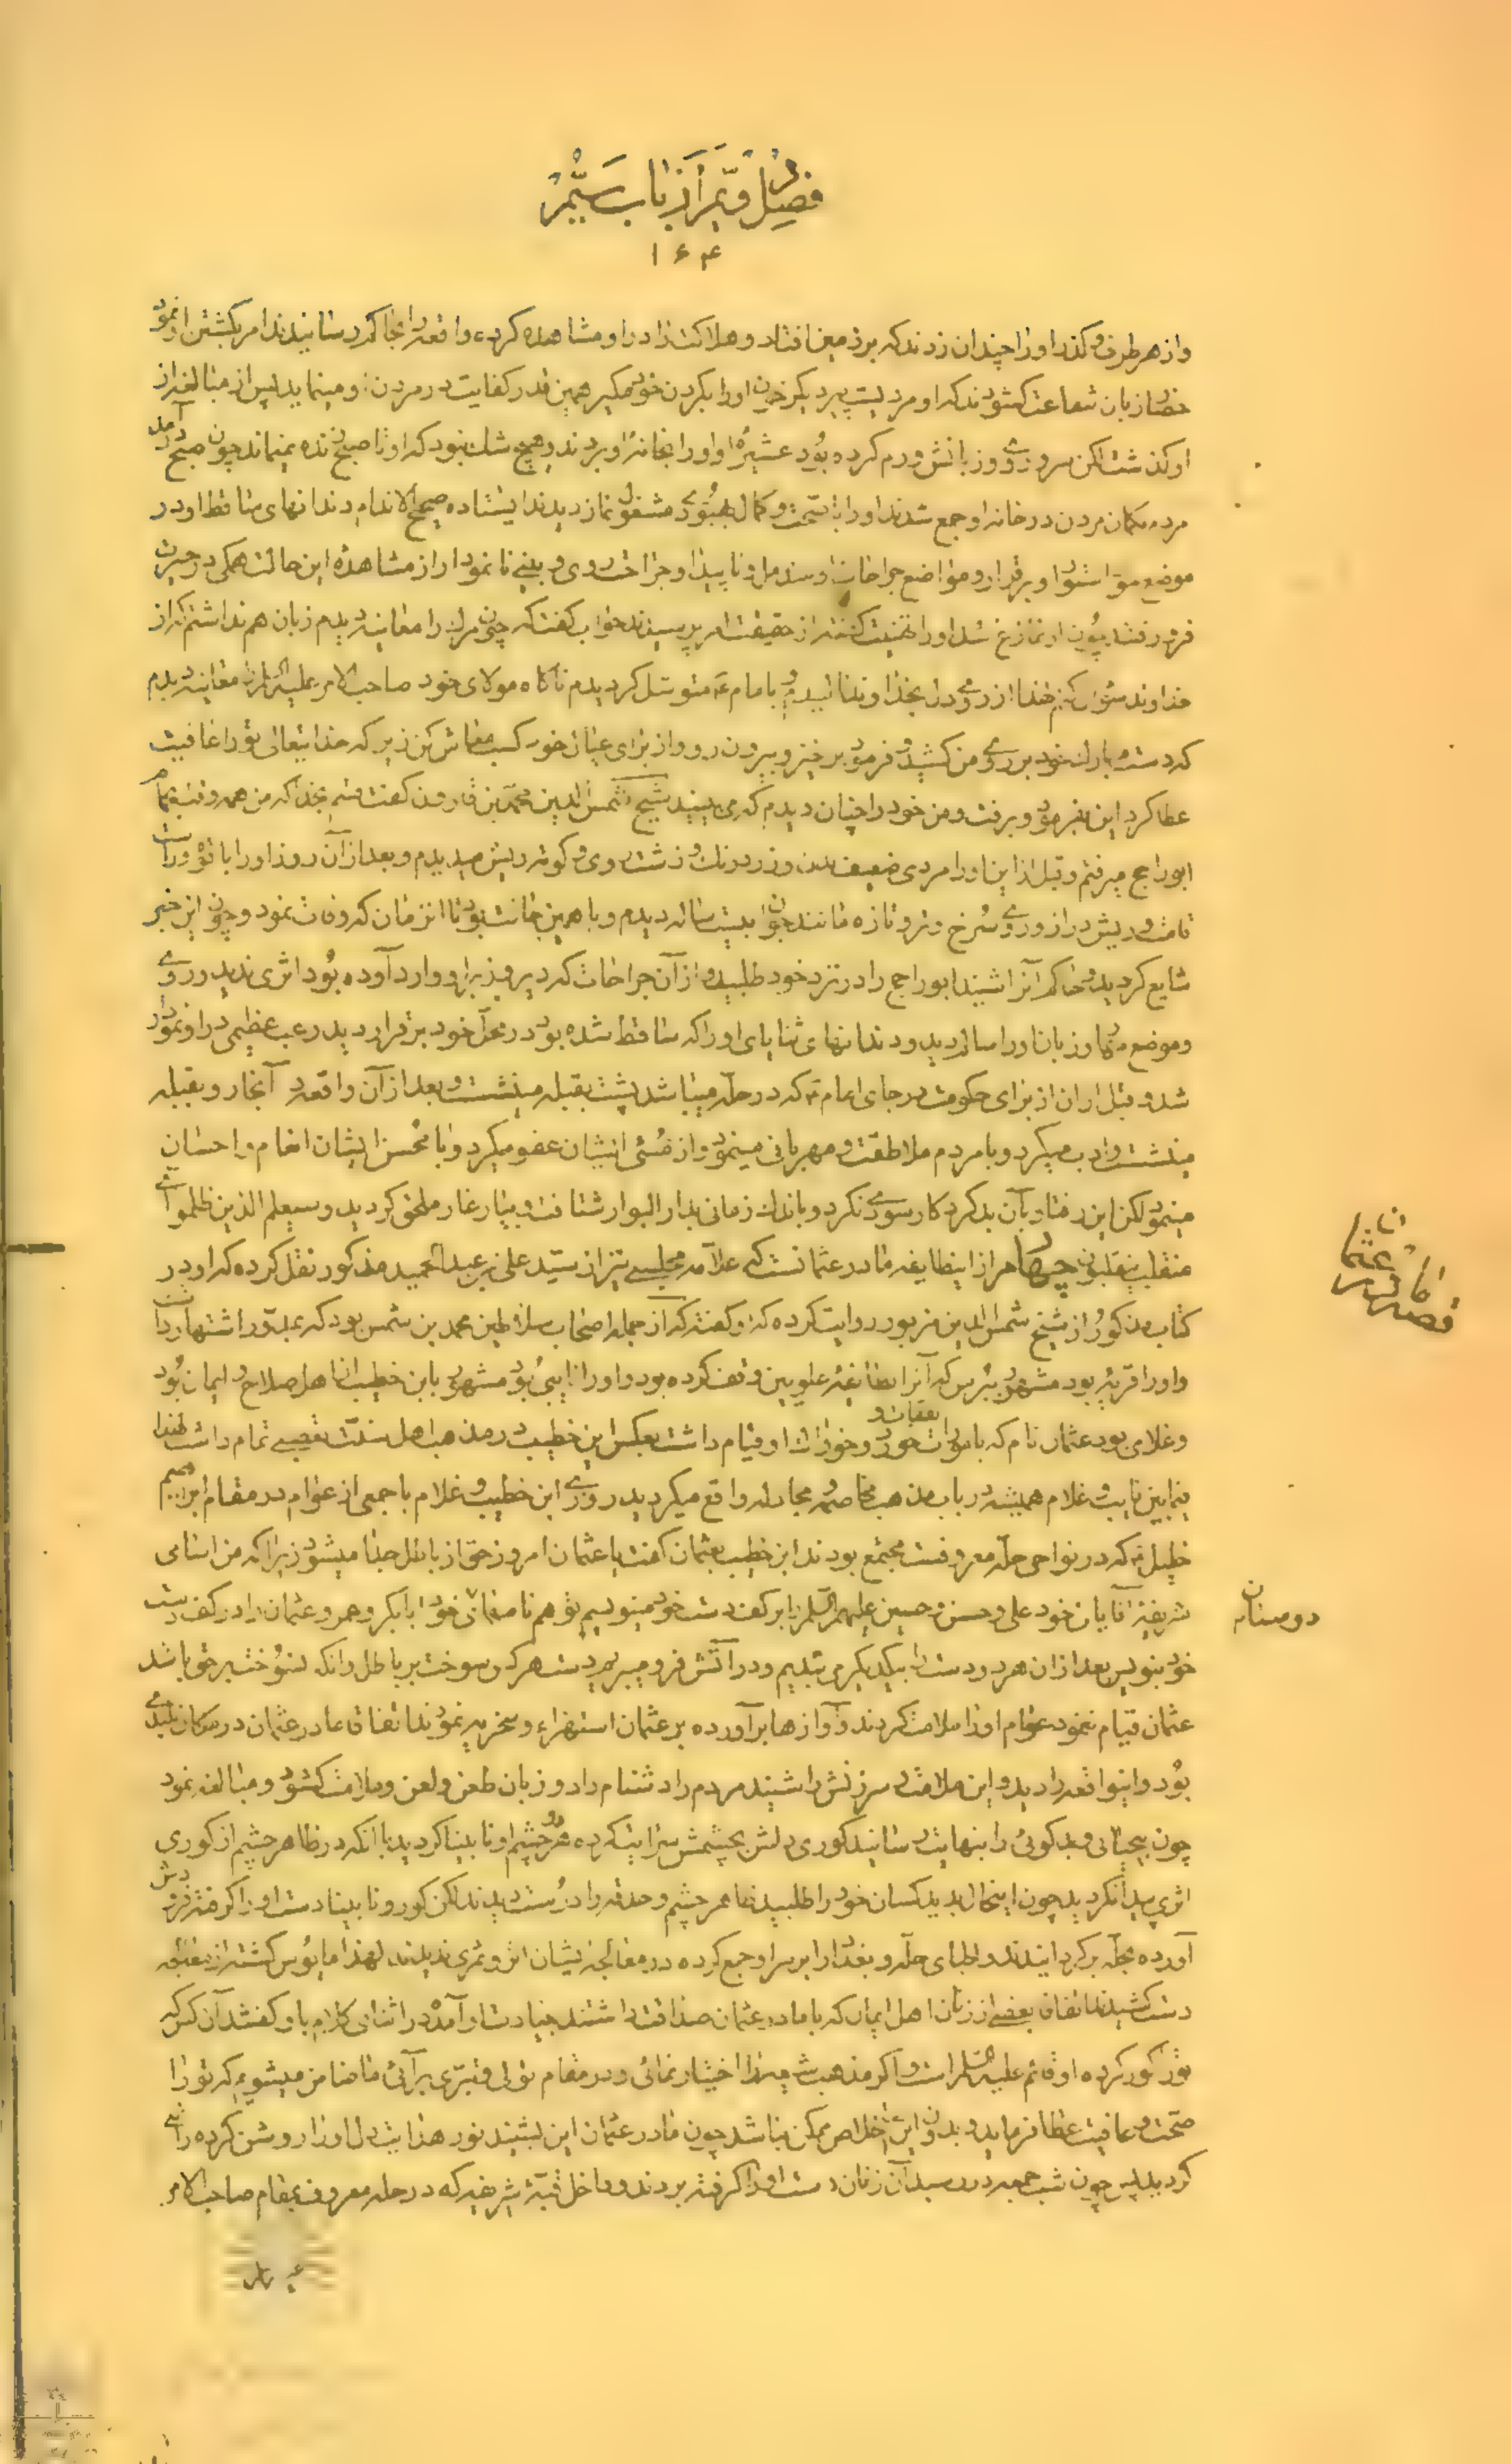 فصل دویم از باب ششم
۱۶۴
واز هر طرف گذر اورا چندان زدند که بر زمین افتاد و هلاکت را در او مشاهده کرده واقعه را بحاکم رسانیدند امر بکشتن او نمود
حضار زبان شفاعت گشودند که او مردیست پیر دیگر خون اورا بگردن خود مگیر همین قدر کفایت در مردن او مینماید پس از مبالغه از
او گذشت لکن سر و روی و زبانش ورم کرده بود عشیرهٔ او اورا بخانهٔ او بردند و هیچ شک نبود که او تا صبح زنده نمیماند چون صبح درآمد
مردم بگمان مردن در خانه او جمع شدند اورا با صحت و کمال بهبودی مشغول نماز دیدند ایستاده صحیح الاندام دندانهای ساقط او در
موضع مؤاستوا و برقرار و مواضع جراحات او مندمل و ناپیدا و جراحت روی و بینی نانمودار از مشاهدهٔ این حالت همگی در حیرت
فرو رفتند چون از نماز فارغ شد اورا تهنیت گفتند از حقیقت امر پرسیدند جواب گفت که چون مرگ را معاینه دیدم زبان هم نداشتم که از
خداوند سؤال کنم خدا را از روی دل بخداوند نالیدم و بامام ع متوسل گردیدم ناگاه مولای خود صاحب الامر علیه السلام را معاینه دیدم
که دست مبارک خود بر روی من کشید و فرمود برخیز و بیرون رو و از برای عیال خود کسب معاش کن زیرا که خدایتعالی تورا عافیت
عطا کرد این بفرمود و برفت و من خود را چنان دیدم که می بینید شیخ شمس الدین محمد بن قارون گفت قسم بخدا که من همه وقت بحمام
ابوراجح میرفتم و قبل از این اورا مردی ضعیف بدن و زرد رنگ و زشت روی و کوته ریش میدیدم و بعد از آن روز اورا با قوه و راست
قامت و ریش دراز و روی سرخ و تر و تازه مانند جوان بیست ساله دیدم و با همین حالت بود تا آنزمان که وفات نمود و چون این خبر
شایع گردید و حاکم آنرا شنید ابوراجح را در نزد خود طلبید و از آن جراحات که دیروز بر او وارد آوده بود اثری ندید و روی
وموضع مهار و زبان اورا سالم دید و دندانهای ثنایای اورا که ساقط شده بود در محل خود برقرار دید رعب عظیمی در او نمودار
شد و قبل از آن از برای حکومت در جای امام ع که در حله میباشد پشت بقبله مینشست و بعد از آن واقعه در آنجا رو بقبله
مینشست و ادب میکرد و با مردم ملاطفت و مهربانی مینمود و از مسئی ایشان عفو میکرد و با محسن ایشان انعام و احسان
مینمود لکن این رفتار بآن بدکردار سودی نکرد و باندک زمانی بدار البوار شتافت و بیار غار ملحق گردید و سیعلم الذین ظلموا ای
منقلب ینقلبون چهارم از اینطایفه مادر عثمانست که علامه مجلسی نیز از سید علی بن عبدالحمید مذکور نقل کرده که او در
کتاب مذکور از شیخ شمس الدین مزبور روایت کرده که او گفت که از جمله اصحاب سلاطین محمد بن شمس بود که بملقّور اشتهار داشت
و اورا قریهٔ بود مشهور ببرس که آنرا بطایفهٔ علویین وقف کرده بود و اورا نایبی بود مشهور بابن خطیب از اهل صلاح و ایمان بود
وغلامی بود عثمان نام که باملاک خود و نفقات و خوزات او قیام داشت بعکس ابن خطیب در مذهب اهل سنت تعصبی تمام داشت لهذا
فیما بین نایب و غلام همیشه در باب مذهب مخاصمه و مجادله واقع میگردید روزی ابن خطیب و غلام با جمعی از عوام در مقام ابراهیم
خلیل ع که در نواحی حله معروفست مجتمع بودند ابن خطیب بعثمان گفت یا عثمان امروز حق از باطل جدا میشود زیرا که من اسامی
شریفهٔ آقایان خود علی و حسن و حسین علیهم السلام را بر کف دست خود مینویسم تو هم نام خود ابابکر و عمر و عثمان را در کف دست
خود بنویس بعد از آن هر دو دست را بیکدیگر می بندیم و در آتش فرو میبریم دست هر که سوخت بر باطل و انکه نسوخت بر حق باشد
عثمان قیام ننمود عوام اورا ملامت کردند و آوازها برآورده بر عثمان استهزاء و سخریه نمودند اتفاقا مادر عثمان در مکان بلندی
بود و اینواقعه را دید و این ملامت و سرزنش را شنید مردم را دشنام داد و زبان طعن و لعن و ملامت گشود و مبالغه نمود
چون بیحیائی و بدگوئی را بنهایت رسانید کوری دلش بچشمش سرایت کرده هر دو چشم او نابینا گردید با آنکه در ظاهر چشم از کوری
اثری پیدا نگردید چون اینحال بدید کسان خود را طلبید ظاهر چشم و حدقه را درست دیدند لکن کور و نابینا دست اورا گرفته فرودش
آورده بحله برگردانیدند و اطبای حله و بغداد را بر سر او جمع کرده در معالجهٔ ایشان اثر و ثمری ندیدند لهذا مایوس گشته از معالجه
دست کشیدند اتفاقا بعضی از زنان اهل ایمان که با مادر عثمان صداقت داشتند بعیادت او آمده در اثنای کلام باو گفتند آن کس که
تورا کور کرده او قائم علیه السلام است و اگر مذهب شیعه را اختیار نمائی و در مقام تولی و تبری برآئی ما ضامن میشویم که تورا
صحت و عافیت عطا فرماید و بدون این خلاصی ممکن نباشد چون مادر عثمان این بشنید نور هدایت دل اورا روشن کرده راضی
گردید پس چون شب جمعه در رسید آن زنان دست اورا گرفته بردند و داخل قبّهٔ شریفه که در حله معروف بمقام صاحب الامر
دوستان